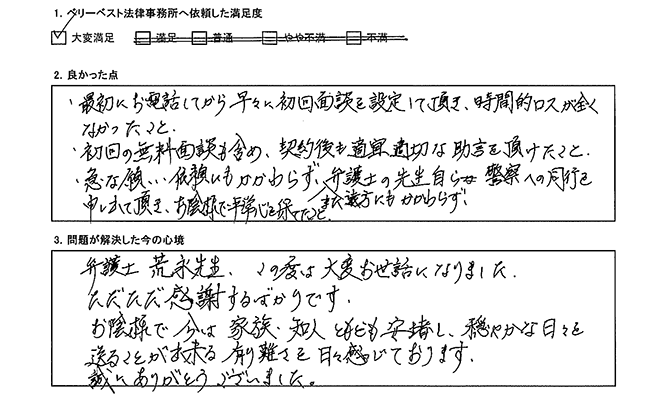 1. ベリーベスト法律事務所へ依頼した満足度
大変満足 満足 普通 やや不満 不満
2. 良かった点
・最初にお電話してから早々に初回面談を設定して頂き、時間的ロスが全く
なかったこと.
・初回の無料面談も含め、契約後も適宜適切な助言を頂けたこと.
・急な願い・依頼にもかかわらず、弁護士の先生自らが警察への同行を
申し出て頂き、お陰様で平常心を保てたこと. また遠方にもかかわらず.
3. 問題が解決した今の心境
弁護士 荒永先生、この度は大変お世話になりました.
ただただ感謝するばかりです.
お陰様で今は家族・知人ともども安堵し、穏やかな日々を
送ることが出来る有難さを日々感じております.
誠にありがとうございました。